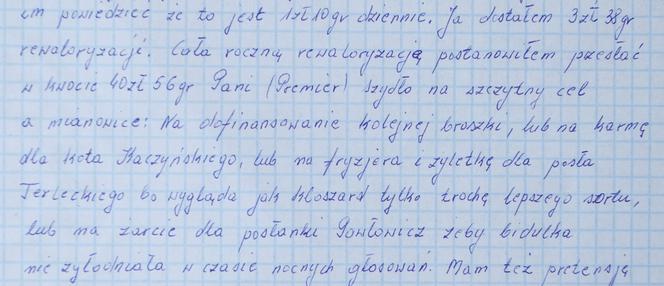 im powiedzieć że to jest 1zł 10gr dziennie. Ja dostałem 3zł 38gr
rewaloryzacji. Całą roczną rewaloryzację postanowiłem przesłać
w kwocie 40zł 56gr Pani (Premier) Szydło na szczytny cel
a mianowice: Na dofinansowanie kolejnej broszki, lub na karmę
dla kota Kaczyńskiego, lub na fryzjera i żyletkę dla posła
Terleckiego bo wygląda jak kloszard tylko trochę lepszego sortu,
lub na żarcie dla posłanki Pawłowicz żeby bidulka
nie zgłodniała w czasie nocnych głosowań. Mam też pretensję